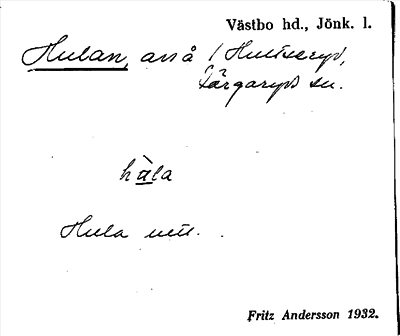 Västbo hd., Jönk. l.
Hulan, arså
Färgaryds sn.
hàla
Hula
Fritz Andersson 1932.